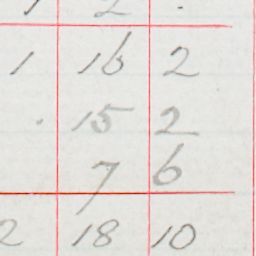 1 16 2
. 15 2
7 6
2 18 10